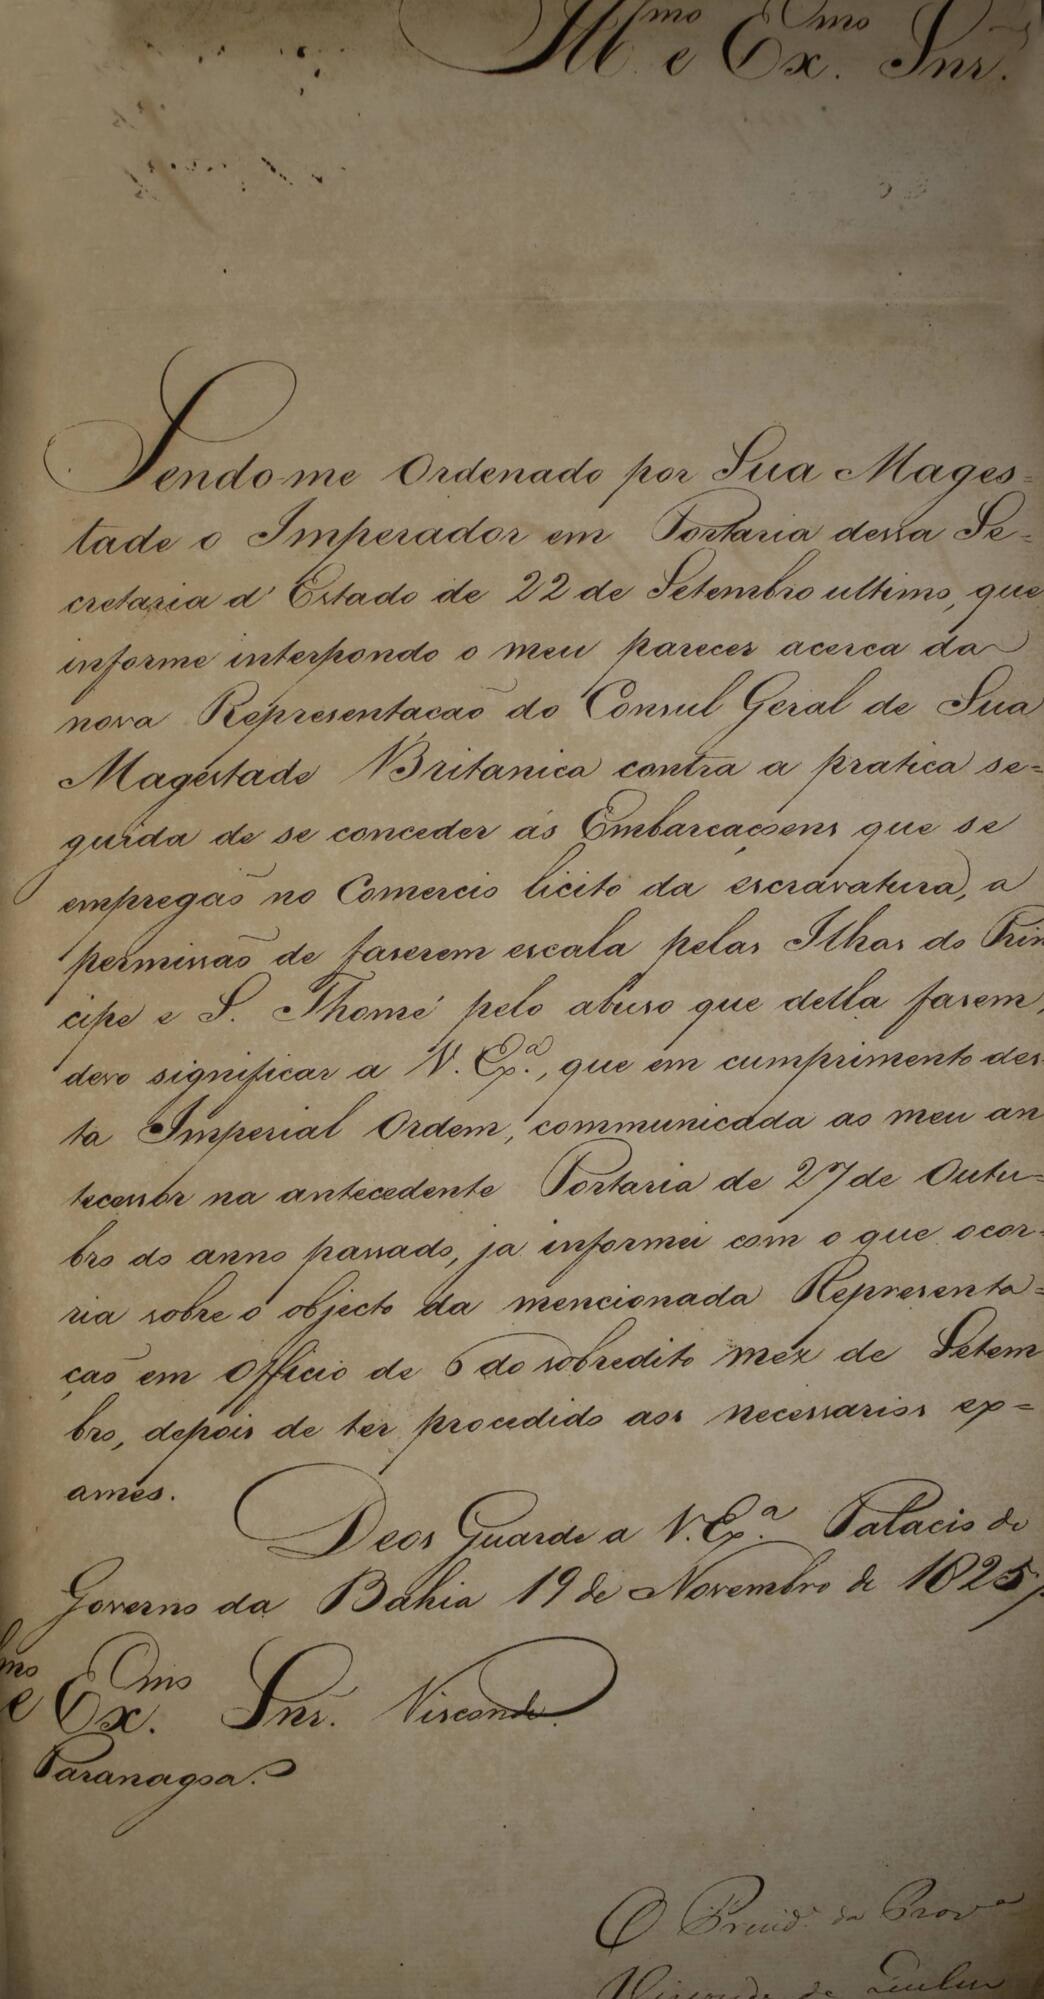 Ill.mo e Ex.mo Snr.
Sendo-me Ordenado por Sua Mages=
tade o Imperador em Portaria dessa Se=
cretaria d' Estado de 22 de Setembro ultimo, que
informe interpondo o meu parecer acerca da
nova Representacaõ do Consul Geral de Sua
Magestade Britanica contra a pratica se=
guida de se conceder ás Embarcaçoens que se
empregaõ no Comercio licito da escravatura, a
permissaõ de faserem escala pelas Ilhas do Prin
cipe e S. Thomé pelo abuso que della fasem,
devo significar a V. Ex.ª, que em cumprimento des
ta Imperial Ordem, communicada ao meu an
tecessor na antecedente Portaria de 27 de Outu=
bro do anno passado, ja informei com o que ocor=
ria sobre o objecto da mencionada Representa=
çaõ em Officio de 6 do sobredito mez de Setem
bro, depois de ter procedido aos necessarios ex=
ames.
Deos Guarde a V. Ex.ª Palacio do
Governo da Bahia 19 de Novembro de 1825
mo e Ex.mo Snr. Visconde
Paranagoa.
O Presid.e da Prov.a
Visconde de